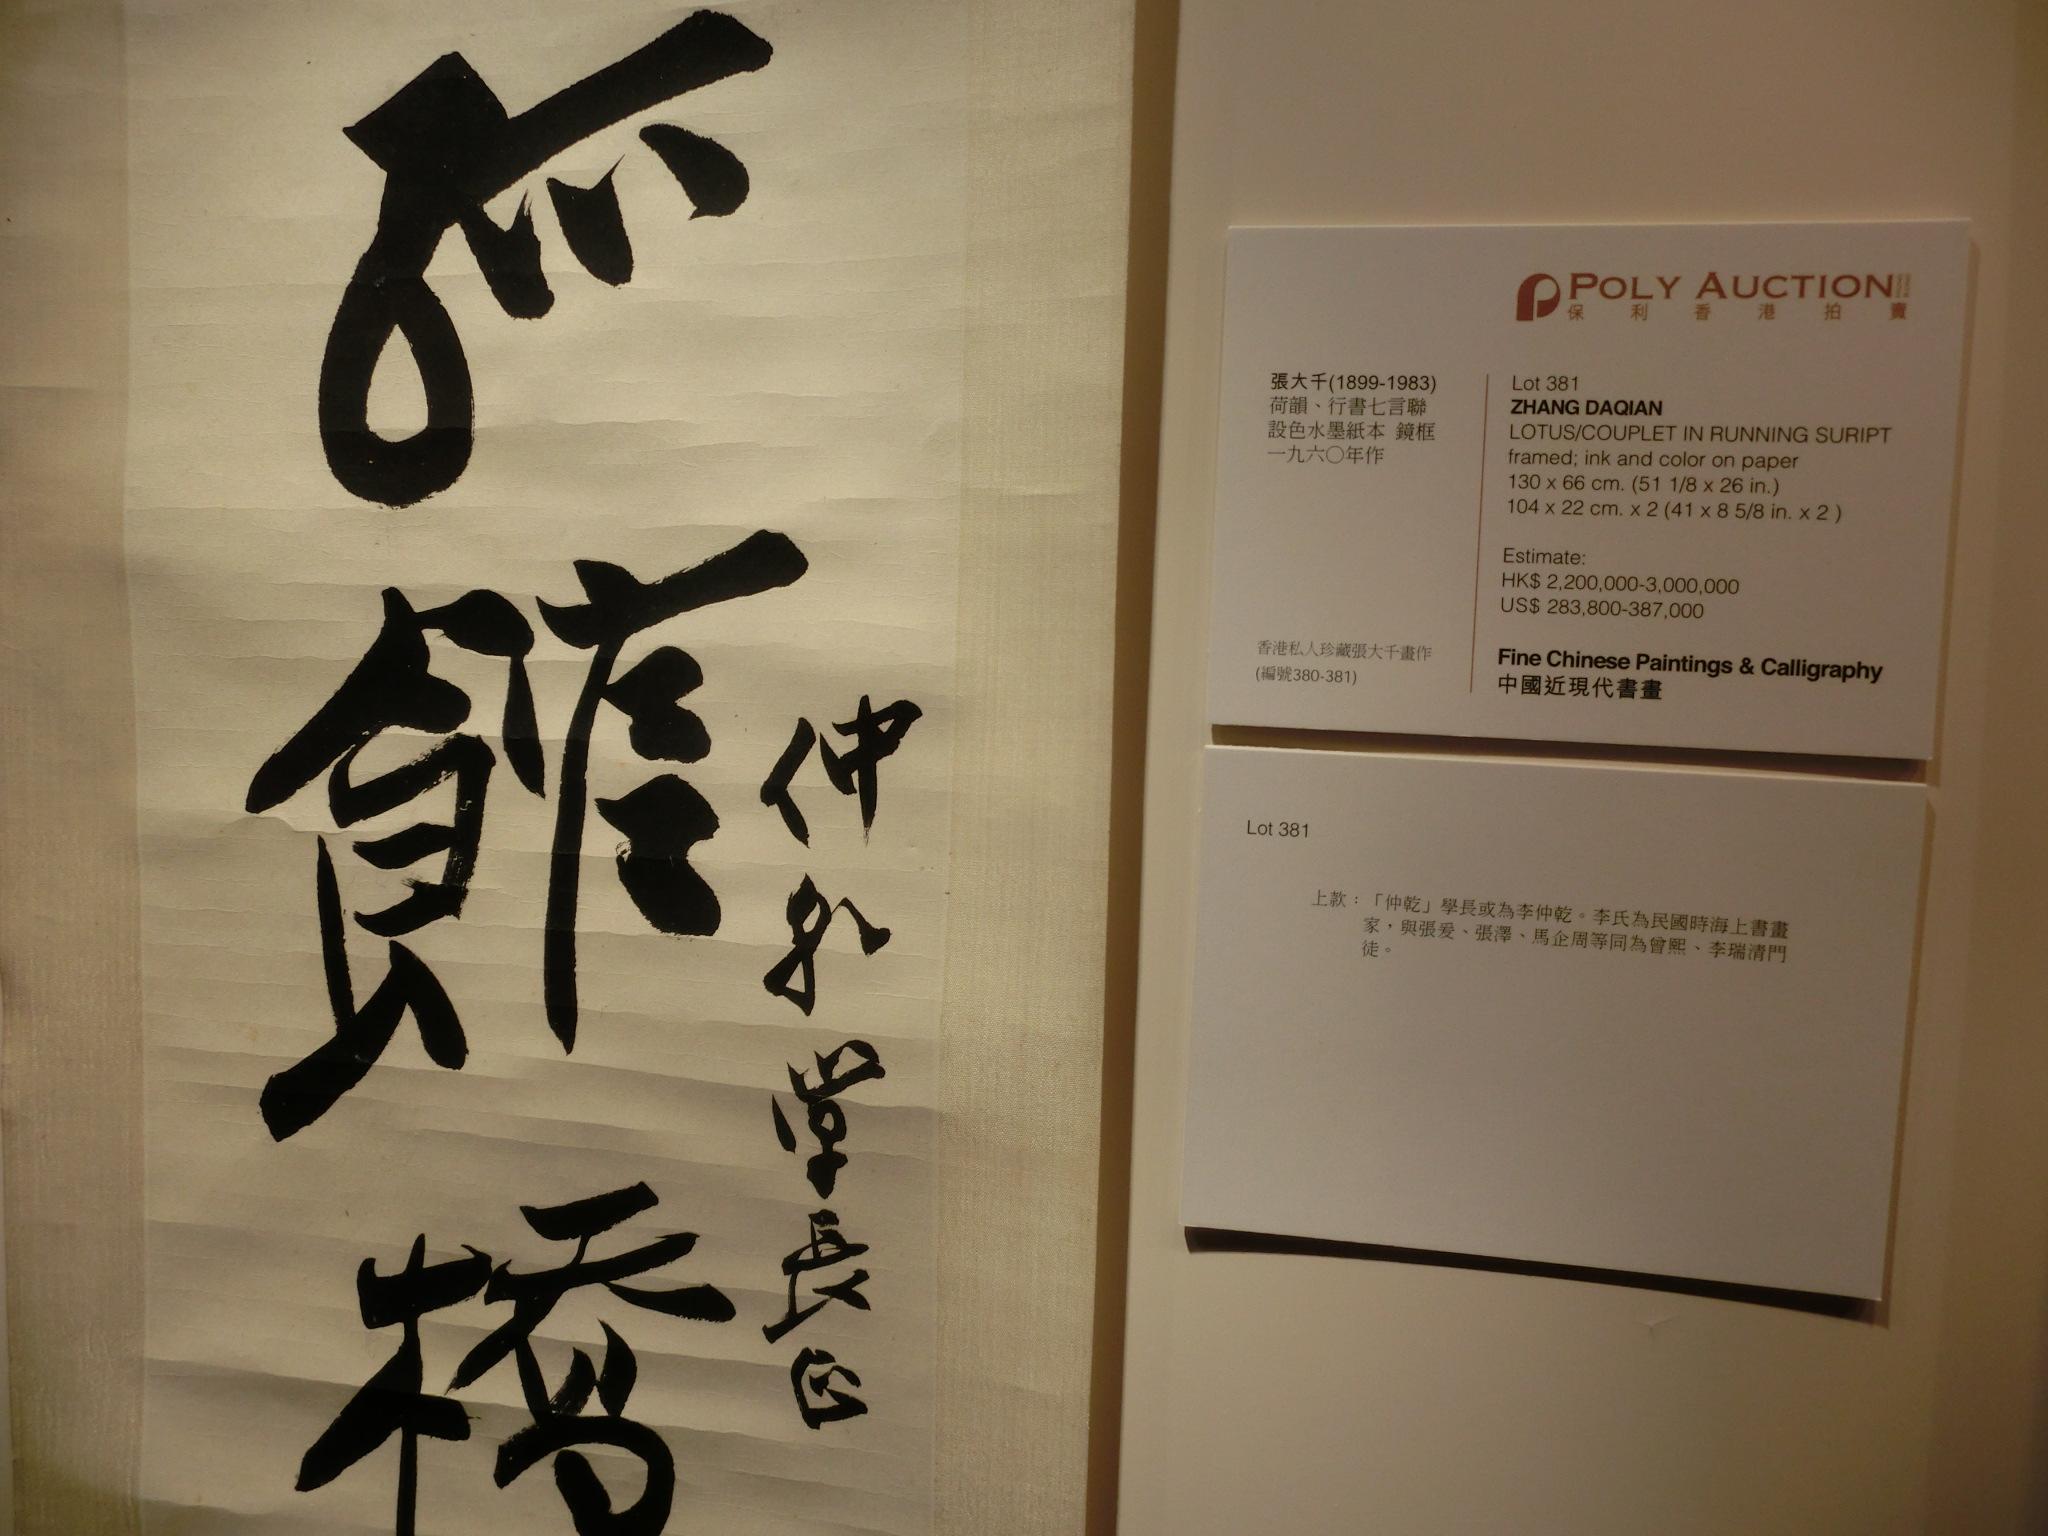 石館橋
仲乾學長正
POLY AUCTION
保利香港拍賣
張大千(1899-1983)
荷韻、行書七言聯
設色水墨紙本 鏡框
一九六〇年作
香港私人珍藏張大千畫作
(編號380-381)
Lot 381
ZHANG DAQIAN
LOTUS/COUPLET IN RUNNING SURIPT
framed; ink and color on paper
130 x 66 cm. (51 1/8 x 26 in.)
104 x 22 cm. x 2 (41 x 8 5/8 in. x 2 )
Estimate:
HK$ 2,200,000-3,000,000
US$ 283,800-387,000
Fine Chinese Paintings & Calligraphy
中國近現代書畫
Lot 381
上款：「仲乾」學長或為李仲乾。李氏為民國時海上書畫
家，與張爰、張澤、馬企周等同為曾熙、李瑞清門
徒。